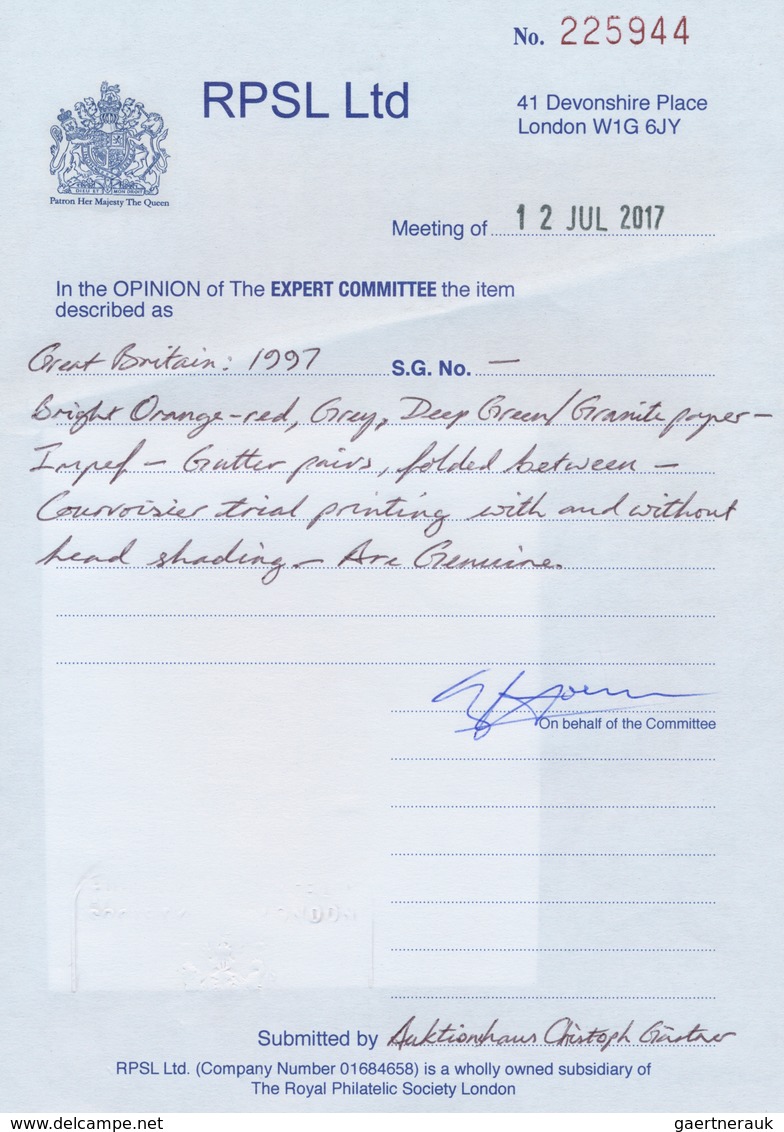 No. 225944
RPSL Ltd
41 Devonshire Place
London W1G 6JY
DIEU ET MON DROIT
Patron Her Majesty The Queen
Meeting of 12 JUL 2017
In the OPINION of The EXPERT COMMITTEE the item
described as
Great Britain: 1997 S.G. No. —
Bright Orange-red, Grey, Deep Green/Granite paper –
Impef – Gutter pairs, folded between –
Courvoisier trial printing with and without
head shading – Are Genuine.
On behalf of the Committee
Submitted by Auktionshaus Christoph Gärtner
RPSL Ltd. (Company Number 01684658) is a wholly owned subsidiary of
The Royal Philatelic Society London
www.delcampe.net gaertnerauk